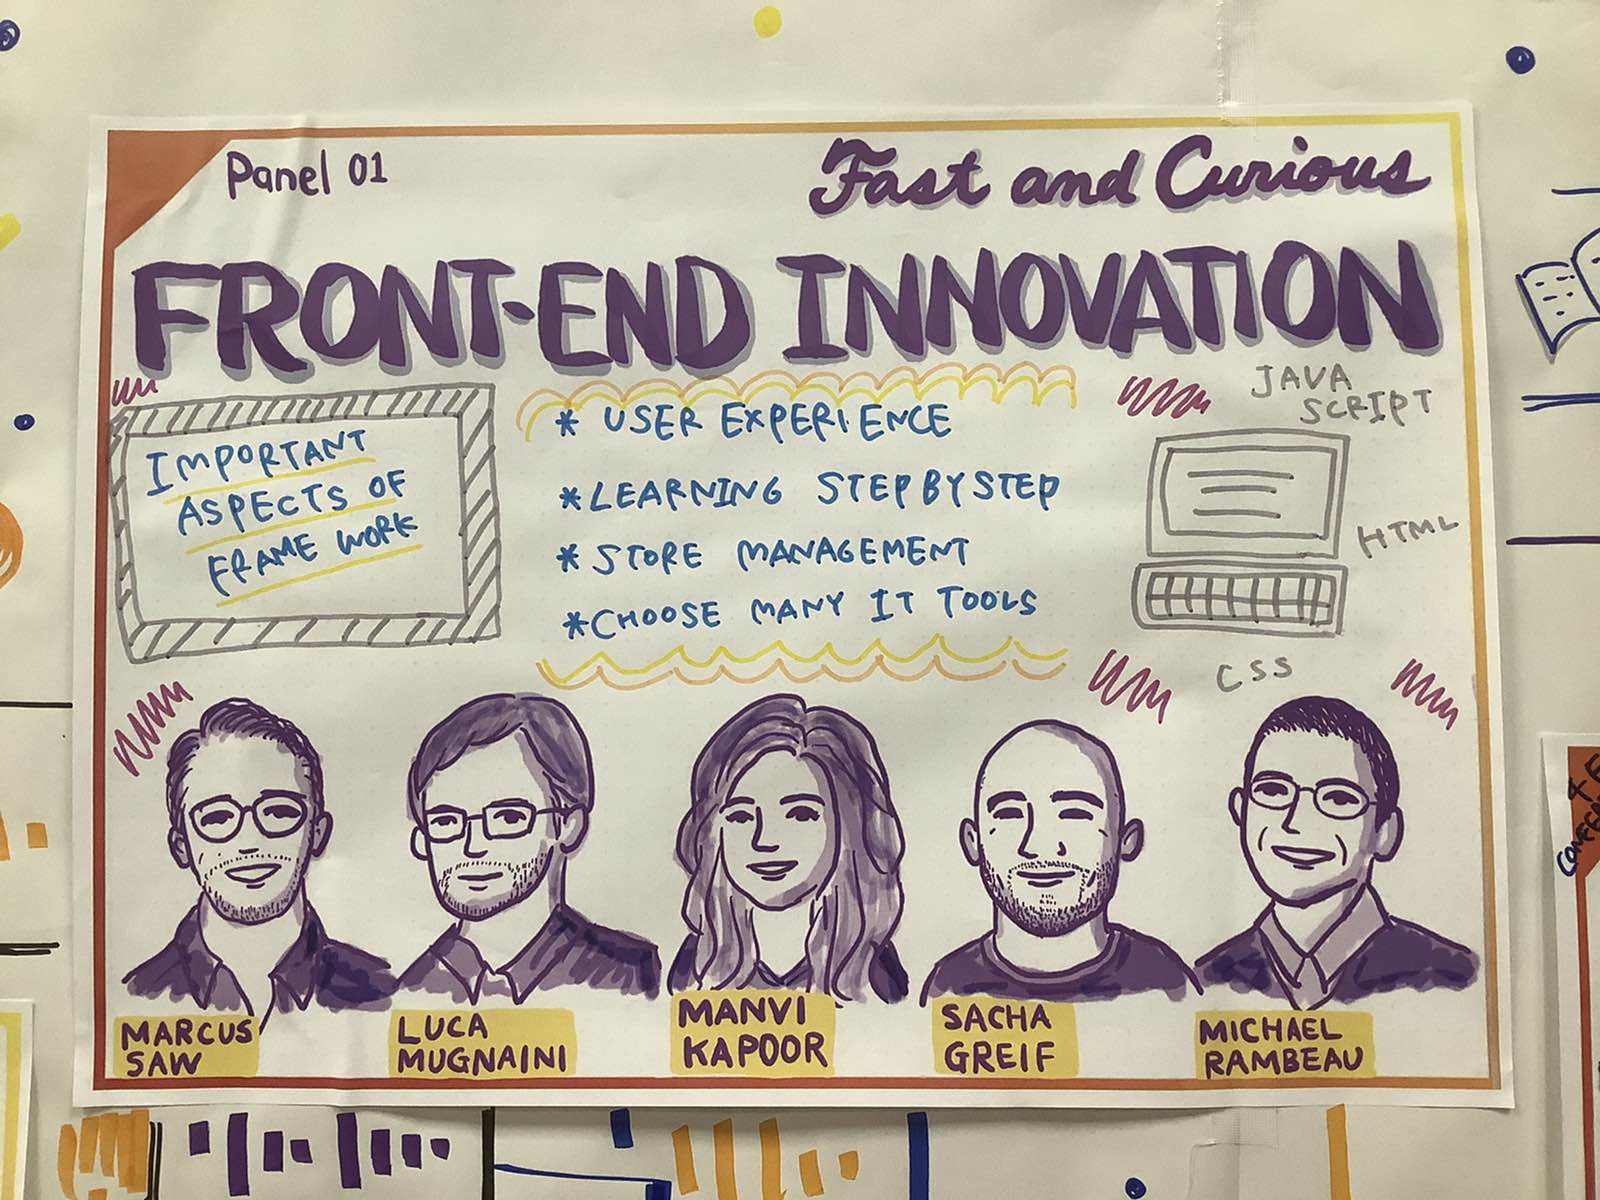 Panel 01
Fast and Curious
FRONT-END INNOVATION
IMPORTANT
ASPECTS OF
FRAME WORK
* USER EXPERIENCE
* LEARNING STEP BY STEP
* STORE MANAGEMENT
* CHOOSE MANY IT TOOLS
JAVA
SCRIPT
HTML
CSS
MARCUS
SAW
LUCA
MUGNAINI
MANVI
KAPOOR
SACHA
GREIF
MICHAEL
RAMBEAU